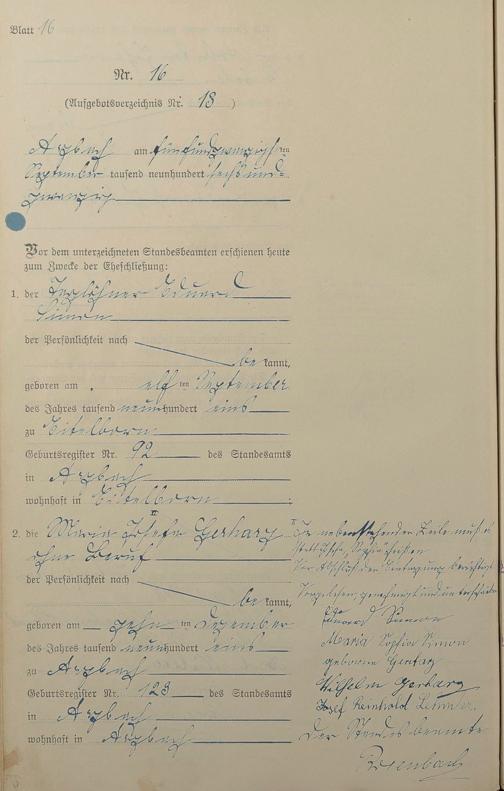 Blatt 16
Nr. 16
(Aufgebotsverzeichnis Nr. 18 )
Arzbach am fünfundzwanzigsten
September tausend neunhundert sechsund-
zwanzig
Vor dem unterzeichneten Standesbeamten erschienen heute
zum Zwecke der Eheschließung:
1. der Taglöhner Eduard
Simon
der Persönlichkeit nach
be kannt,
geboren am elf ten September
des Jahres tausend neunhundert eins
zu Eitelborn
Geburtsregister Nr. 92 des Standesamts
in Arzbach
wohnhaft in Eitelborn ;
2. die Maria Josefa Gerharz
ohne Beruf
der Persönlichkeit nach
be kannt,
geboren am zehn ten Dezember
des Jahres tausend neunhundert eins
zu Arzbach
Geburtsregister Nr. 123 des Standesamts
in Arzbach
wohnhaft in Arzbach
In nebenstehender Zeile muß es
statt Josefa, Sophia heißen
Vor Abschluß der Eintragung berichtigt
Vorgelesen, genehmigt und unterschrieben
Eduard Simon
Maria Sophia Simon
geborene Gerharz
Wilhelm Gerharz
Josef Reinhold
Der Standesbeamte